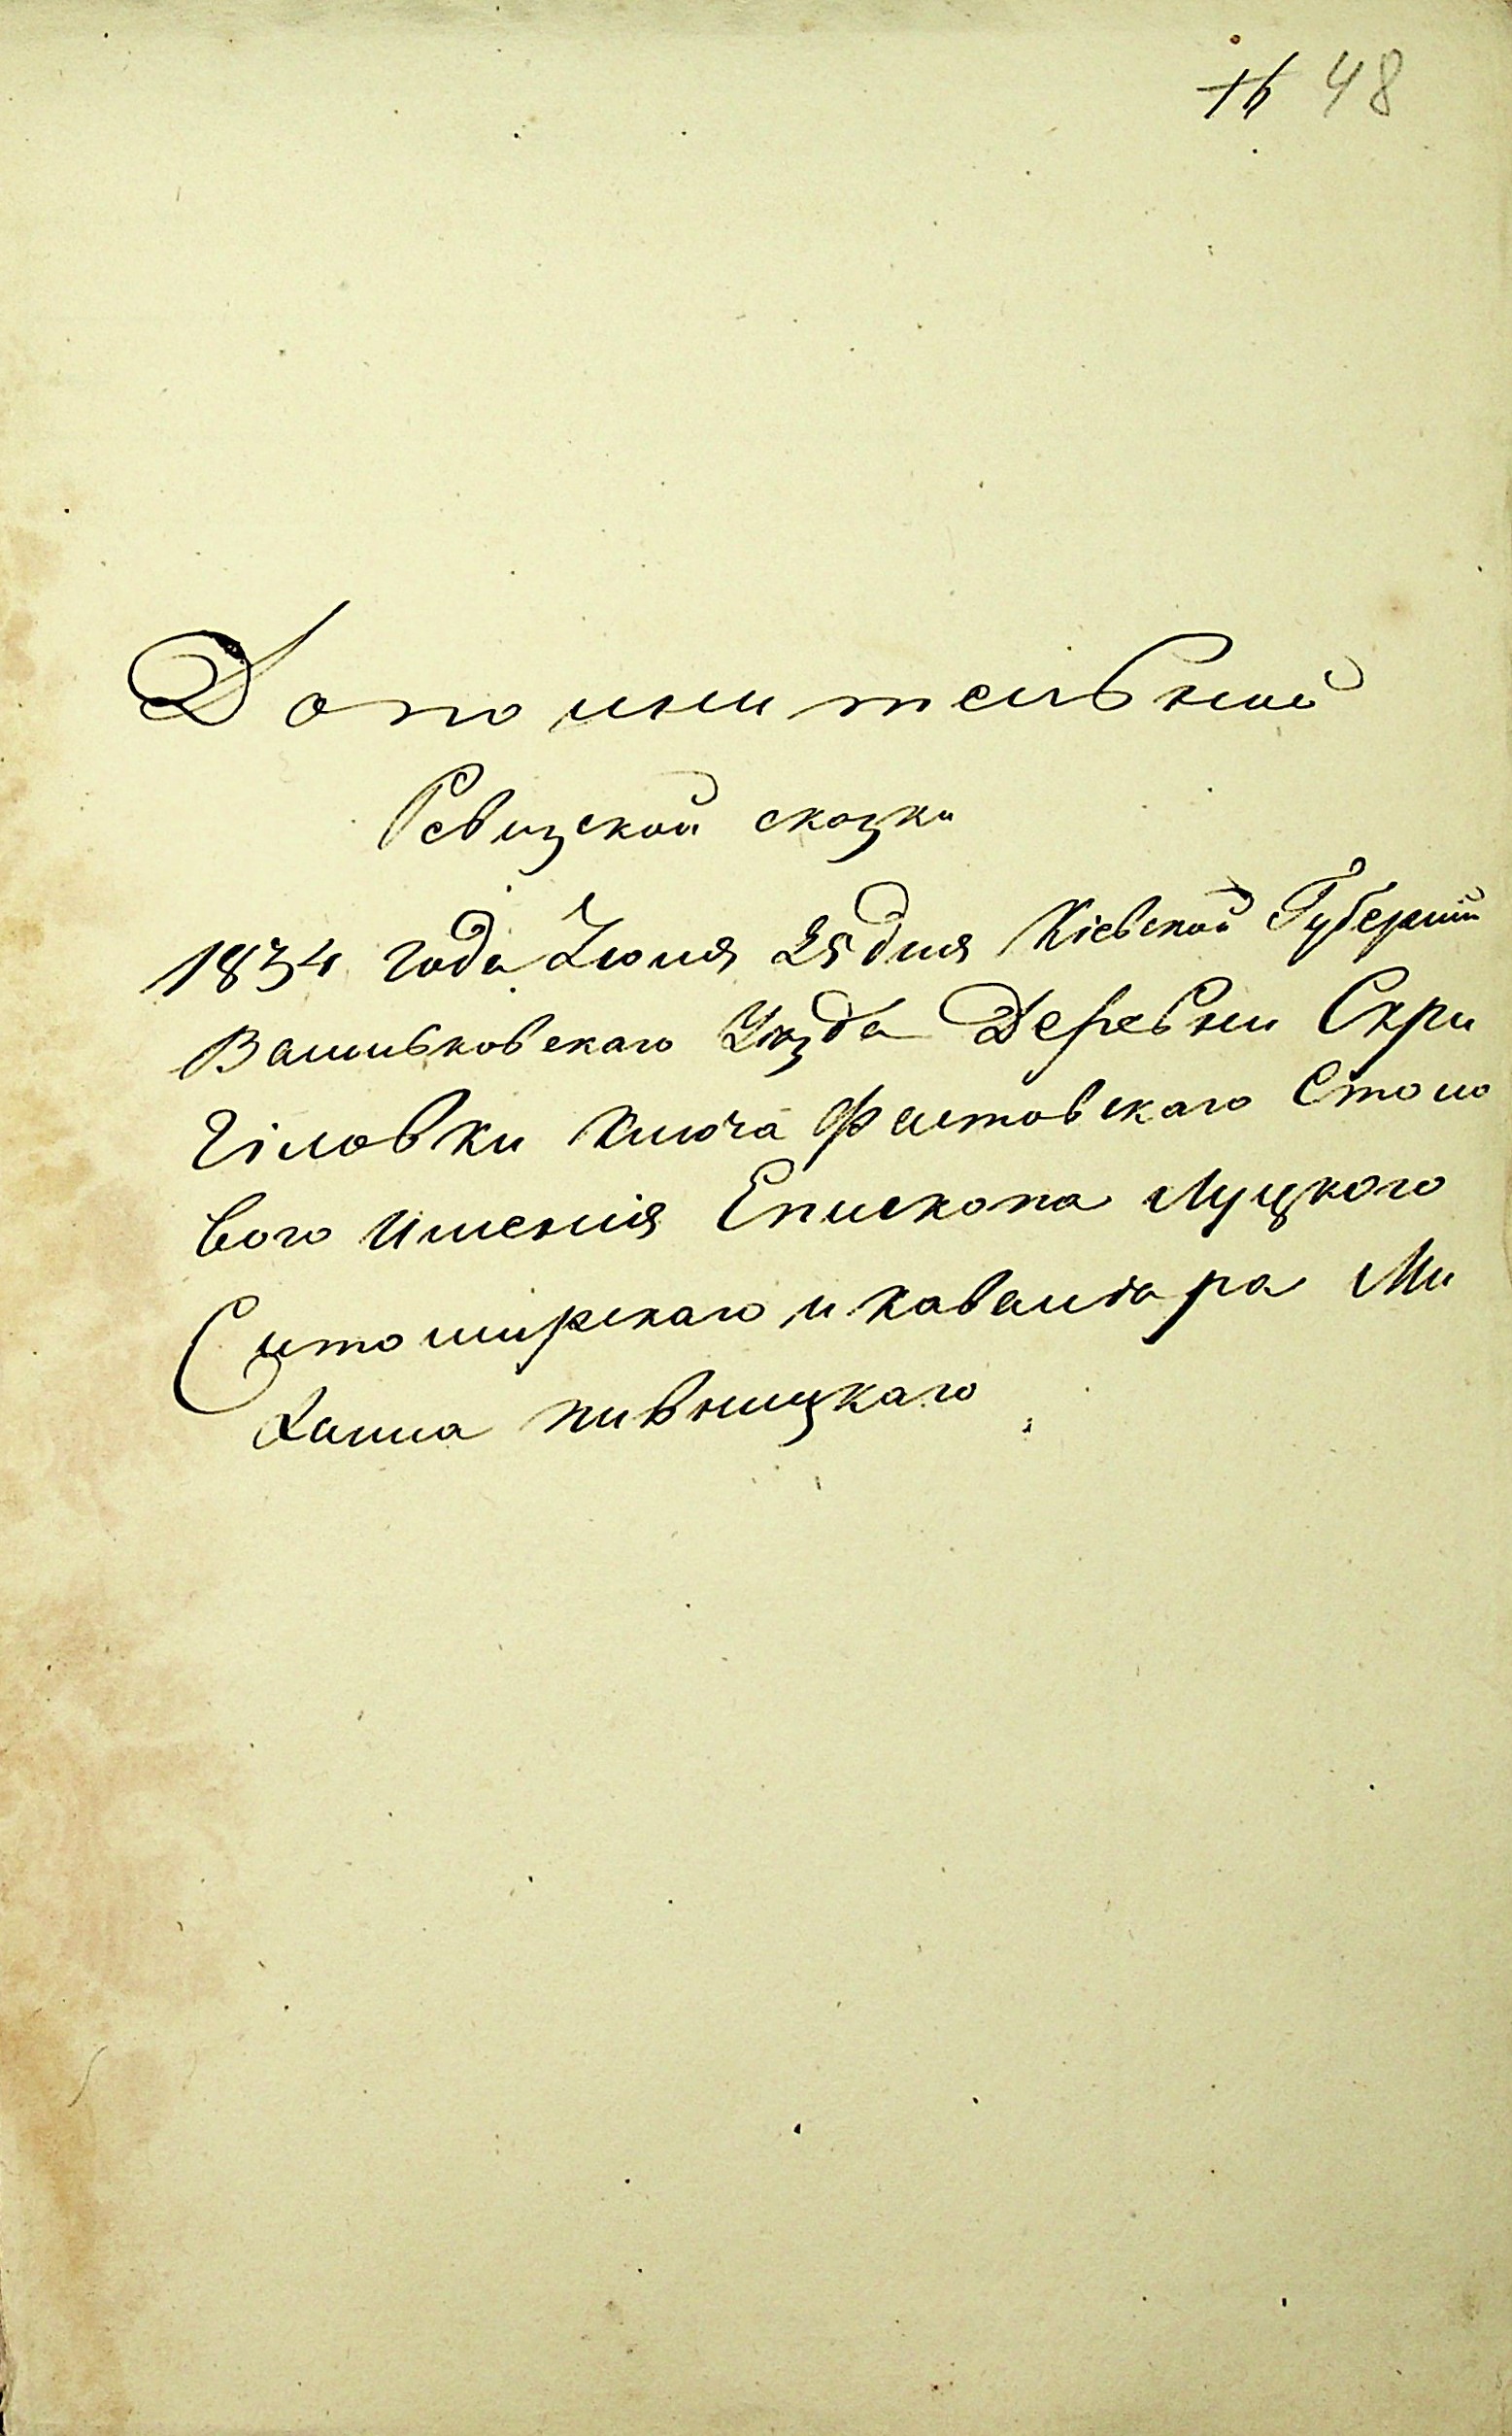 48
Дополнительной
Ревизской сказки
1834 года Июня 25 дня Кіевской Губерніи
Васильковскаго Уезда Деревни Скри
гіловки ключа Фастовскаго Столо
вого имснія Епископа Луцкого
Ситомирскаго и кавалѣра Ми
хаила пивницкаго